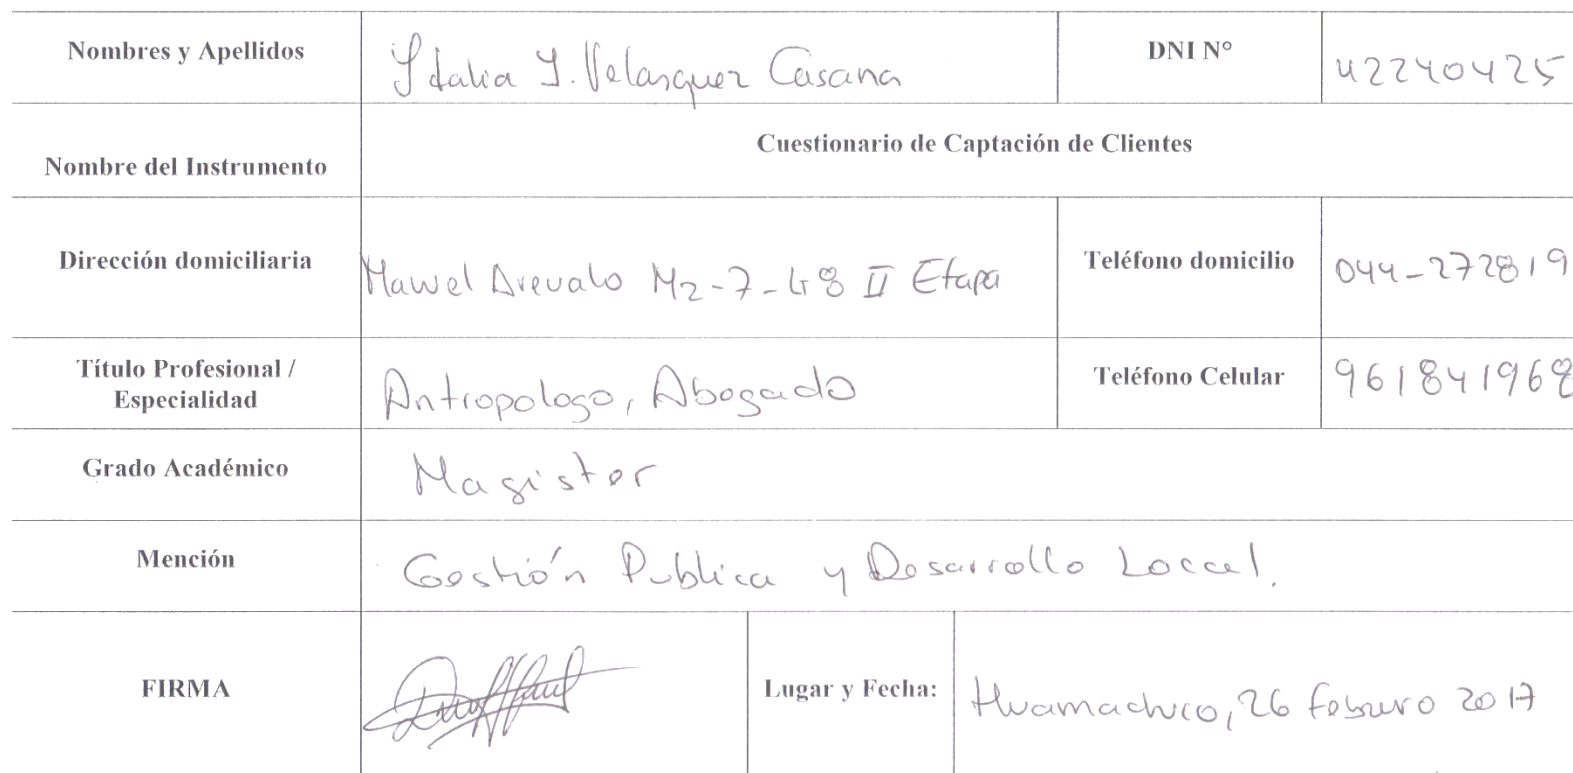 Nombres y Apellidos Italia I. Velasquez Casana DNI N° 42240425
Nombre del Instrumento Cuestionario de Captación de Clientes
Dirección domiciliaria Manuel Arevalo Mz-7-48 II Etapa Teléfono domicilio 044-272819
Título Profesional /
Especialidad Antropologo, Abogado Teléfono Celular 961841968
Grado Académico Magister
Mención Gestión Publica y Desarrollo Local.
FIRMA Lugar y Fecha: Huamachuco, 26 Febrero 2017